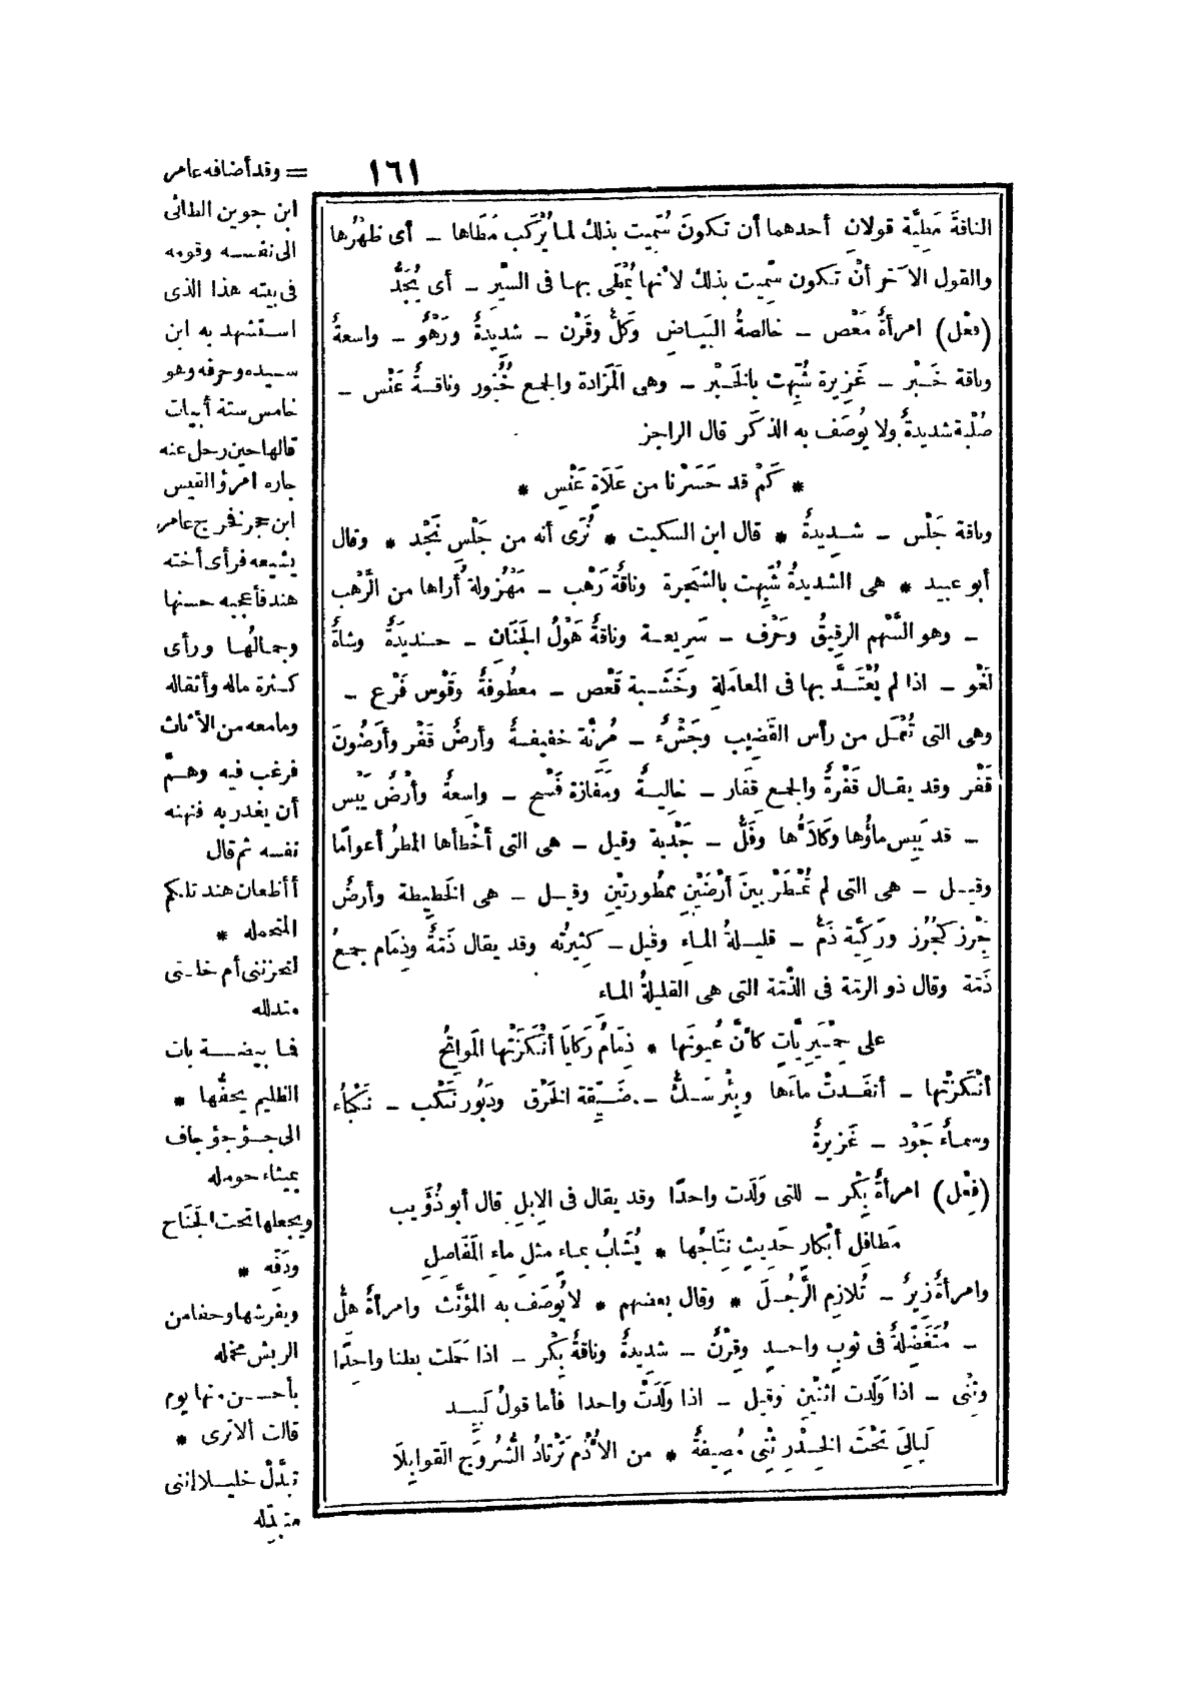 ١٦١
الناقةَ مَطِيَّة قولانِ أحدهما أن تكونَ سُمِّيت بذلك لما يُرْكَب مَطَاها ــ أى ظهْرُها
والقول الآخر أنْ تكون سُمِّيت بذلك لأنها يُمْطَى بها فى السَّيْرِ ــ أى يُجَدُّ
(فَعْل) امرأةُ مَعْص ــ خالصةُ البَيَاضِ وَكَلٌّ وقَرْن ــ شديدةُ ورَهْوٌ ــ واسعةُ
وناقة خَبْر ــ غَزِيرة شُبِّهت بالخَبْر ــ وهى المَزَادة والجمع خُبُور وناقةُ عَنْس ــ
صُلْبة شديدةُ ولا يُوصَف به الذكَر قال الراجز
* كَمْ قد حَسَرْنا من عَلَاةٍ عَنْسِ *
وناقة جَلْس ــ شديدةُ * قال ابن السكيت * نُرَى أنه من جَلْسِ نَجْد * وقال
أبو عبيد * هى الشديدةُ شُبِّهت بالشجرة وناقةُ رَهْب ــ مَهْزُولة أُراها من الرَّهْب
ــ وهو السَّهْم الرقِيقُ وحَرْف ــ سَرِيعة وناقةُ هَوْلُ الجَنَانِ ــ حديدَةُ وشاةُ
لَغْو ــ اذا لم يُعْتَدَّ بها فى المعامَلةِ وخَشَبة قَعْص ــ معطُوفةُ وقَوْس فَرْع ــ
وهى التى تُعْمَل من رأس القَضِيب وجَشْءُ ــ مُرِنَّة خفيفةُ وأرضُ قَفْر وأرَضُونَ
قَفْر وقد يقال قَفْرةُ والجمع قِفَار ــ خاليةُ ومَفَازة فَسْح ــ واسِعةُ وأرْضُ يَبْس
ــ قد يَبِس ماؤُها وكَلَأُها وفَلٌّ ــ جَدْبة وقيل ــ هى التى أخْطأها المطرُ أعوامًا
وقيل ــ هى التى لم تُمْطَرْ بينَ أرْضَيْنِ ممطُورتَيْنِ وقيل ــ هى الخَطِيطة وأرضُ
جَرْز كَجُرُز ورَكِيَّة ذَمٌّ ــ قليلةُ الماءِ وقيل ــ كثيرتُه وقد يقال ذَمَّةُ وذِمَام جمعُ
ذَمَّة وقال ذو الرمَّة فى الذَّمَّة التى هى القليلةُ الماءِ
على حِمْيَرِيَّاتٍ كأنَّ عُيونَها * ذِمَامُ رَكَايَا أنْكَزَتْها المَواتِحُ
أنْكَزَتْها ــ أنفَدتْ ماءَها وبِئْر سَكٌّ ــ ضَيِّقة الخَرْق ودَبُور نَكْب ــ نَكْبَاء
وسماءُ جَوْد ــ غَزِيرةُ
(فِعْل) امرأةُ بِكْر ــ للتى وَلَدت واحدًا وقد يقال فى الإبلِ قال أبو ذُؤَيب
مَطَافِلِ أبْكارٍ حَدِيثٍ نِتَاجُها * يُشَابُ بماءٍ مثلِ ماءِ المَفَاصِلِ
وامرأةُ زِيرُ ــ تُلازِم الرَّجُلَ * وقال بعضهم * لا يُوصَف به المؤَنَّث وامرأةُ هِلٌّ
ــ مُتَفَضِّلةُ فى ثوبٍ واحدٍ وقِرْنُ ــ شديدةُ وناقةُ بِكْر ــ اذا حَمَلت بطنا واحِدًا
وثِنْى ــ اذا وَلَدت اثنَيْنِ وقيل ــ اذا وَلَدَتْ واحدا فأما قولُ لَبِيد
لَيالِىَ تَحْتَ الخِدْرِ ثِنْى مُصِيفةُ * من الأُدْمِ تَرْتادُ الشُّرُوجَ القَوابِلَا
= وقد أضافه عامر
ابن جوين الطائى
الى نفسه وقومه
فى بيته هذا الذى
استشهد به ابن
سيده وحرفه وهو
خامس ستة أبيات
قالها حين رحل عنه
جاره امرؤ القيس
ابن حجر فخرج عامر
يشيعه فرأى أخته
هند فأعجبه حسنها
وجمالُها ورأى
كثرة ماله وأثقاله
وما معه من الأثاث
فرغب فيه وهمّ
أن يغدر به فنهته
نفسه ثم قال
أأظعان هند تلكم
المتحمله *
لتحزننى أم خلتى
متدلله
فما بيضة بات
الظليم يحفُّها *
الى جؤجؤ جاف
بميثاء حومله
ويجعلها تحت الجَنَاح
ودَفِّه *
ويفرشها وحفا من
الريش مخمله
بأحسن منها يوم
قالت ألا ترى *
تبدَّلْ خليلا إننى
متبدِّله